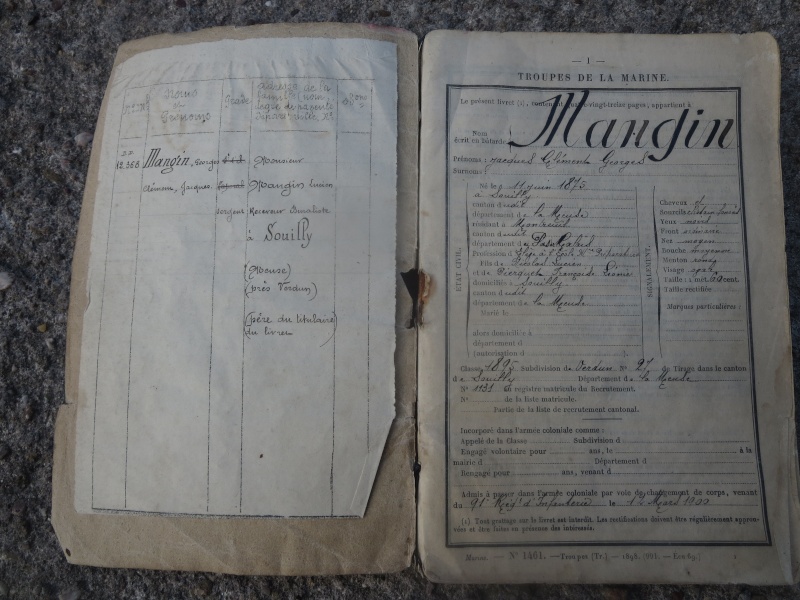 Nos Mle
Noms
et
Prénoms
Grade
Adresse de la
famille
12.368
Mangin, Georges
Clément, Jacques
caporal
sergent
Monsieur
Mangin Lucien
Receveur Buraliste
à Souilly
(Meuse)
(près Verdun)
(père du titulaire
du livret)
— 1 —
TROUPES DE LA MARINE.
Le présent livret (1), contenant quatre-vingt-treize pages, appartient à
Nom
écrit en bâtarde
Mangin
Prénoms : Jacques Clément Georges
Surnoms :
ÉTAT CIVIL.
Né le 11 juin 1875
à Souilly
canton dudit
département de la Meuse
résidant à
canton dudit
département du Pas de Calais
Profession d
Fils de Nicolas Lucien
et de Pierquet Françoise
domiciliés à Souilly
canton dudit
département de la Meuse
Marié le
alors domiciliés à
département d
(autorisation d ).
SIGNALEMENT.
Cheveux et
Sourcils
Yeux
Front ordinaire
Nez moyen
Bouche moyenne
Menton rond
Visage ovale
Taille : 1 mèt. cent.
Taille rectifiée
Marques particulières :
Classe 1895 Subdivision de Verdun N° 27 de Tirage dans le canton
de Souilly Département de la Meuse
N° 1131 du registre matricule du Recrutement.
N° de la liste matricule.
Partie de la liste de recrutement cantonal.
Incorporé dans l'armée coloniale comme :
Appelé de la Classe Subdivision d
Engagé volontaire pour ans, le à la
mairie d Département d
Rengagé pour ans, venant d
Admis à passer dans l'armée coloniale par voie de changement de corps, venant
du 91e Régt d'Infanterie le 12 Mars 1900
(1) Tout grattage sur le livret est interdit. Les rectifications doivent être régulièrement approu-
vées et être faites en présence des intéressés.
Marine. — N° 1461. — Troupes (Tr.)